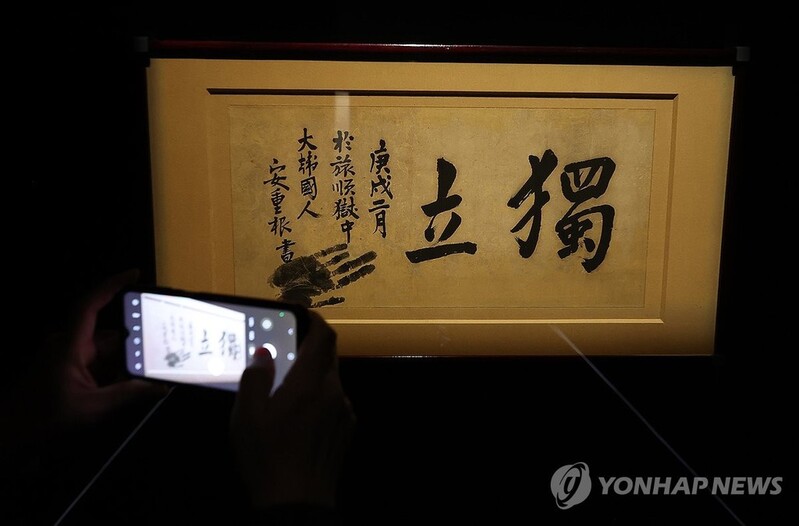 獨立
庚戌二月
於旅順獄中
大韓國人
安重根書
YONHAP NEWS